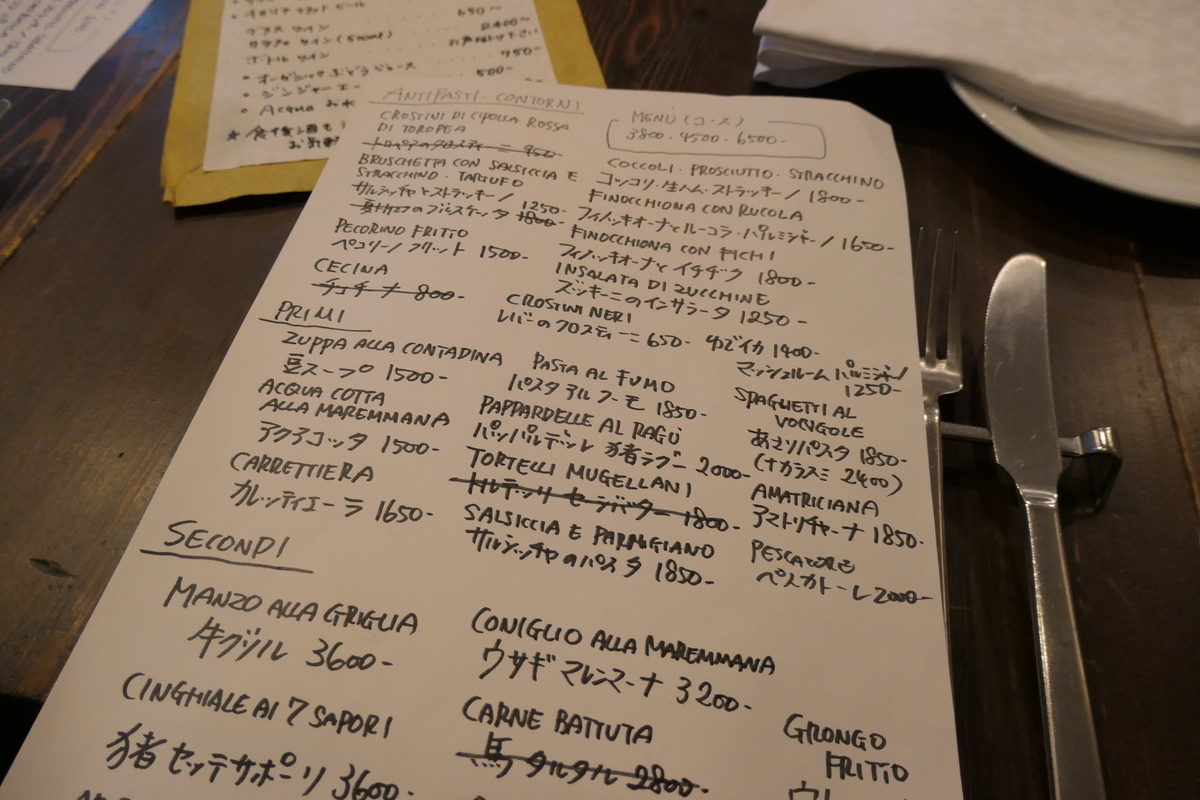 グラスワイン 650~
2400~
ボトルワイン お声掛け下さい
・オーガニックぶどうジュース 750-
・ジンジャーエー 500-
・Acqua お水
ANTIPASTI - CONTORNI
CROSTINI DI CIPOLLA ROSSA
DI TOROPEA
トロペアのクロスティーニ 950-
BRUSCHETTA CON SALSICCIA E
STRACCHINO・TARTUFO
サルシッチャとストラッキーノ 1250-
のブルスケッタ 1800-
PECORINO FRITTO
ペコリーノフリット 1500-
CECINA
チェチーナ 800-
MENÙ (コース)
3800・4500・6500-
COCCOLI・PROSCIUTTO・STRACCHINO
コッコリ・生ハム・ストラッキーノ 1800-
FINOCCHIONA CON RUCOLA
フィノッキオーナとルーコラ・パルミジャーノ 1650-
FINOCCHIONA CON FICHI
フィノッキオーナとイチヂク 1800-
INSALATA DI ZUCCHINE
ズッキーニのインサラータ 1250-
CROSTINI NERI
レバーのクロスティーニ 650-
ゆでイカ 1400-
マッシュルーム パルミジャーノ
1250-
PRIMI
ZUPPA ALLA CONTADINA
豆スープ 1500-
ACQUA COTTA
ALLA MAREMMANA
アクアコッタ 1500-
CARRETTIERA
カレッティエーラ 1650-
PASTA AL FUMO
パスタアルフーモ 1850-
PAPPARDELLE AL RAGÙ
パッパルデッレ 猪ラグー 2000-
TORTELLI MUGELLANI
トルテッリ セージバター 1800-
SALSICCIA E PARMIGIANO
サルシッチャのパスタ 1850-
SPAGHETTI AL
VONGOLE
あさりパスタ 1850-
(+カラスミ 2400)
AMATRICIANA
アマトリチャーナ 1850-
PESCATORE
ペスカトーレ 2000-
SECONDI
MANZO ALLA GRIGLIA
牛グリル 3600-
CINGHIALE AI 7 SAPORI
猪 セッテサポーリ 3600-
CONIGLIO ALLA MAREMMANA
ウサギ マレンマーナ 3200-
CARNE BATTUTA
馬 タルタル 2800-
GRONGO
FRITTO